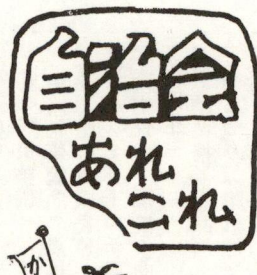 自治会
あれ
これ
か